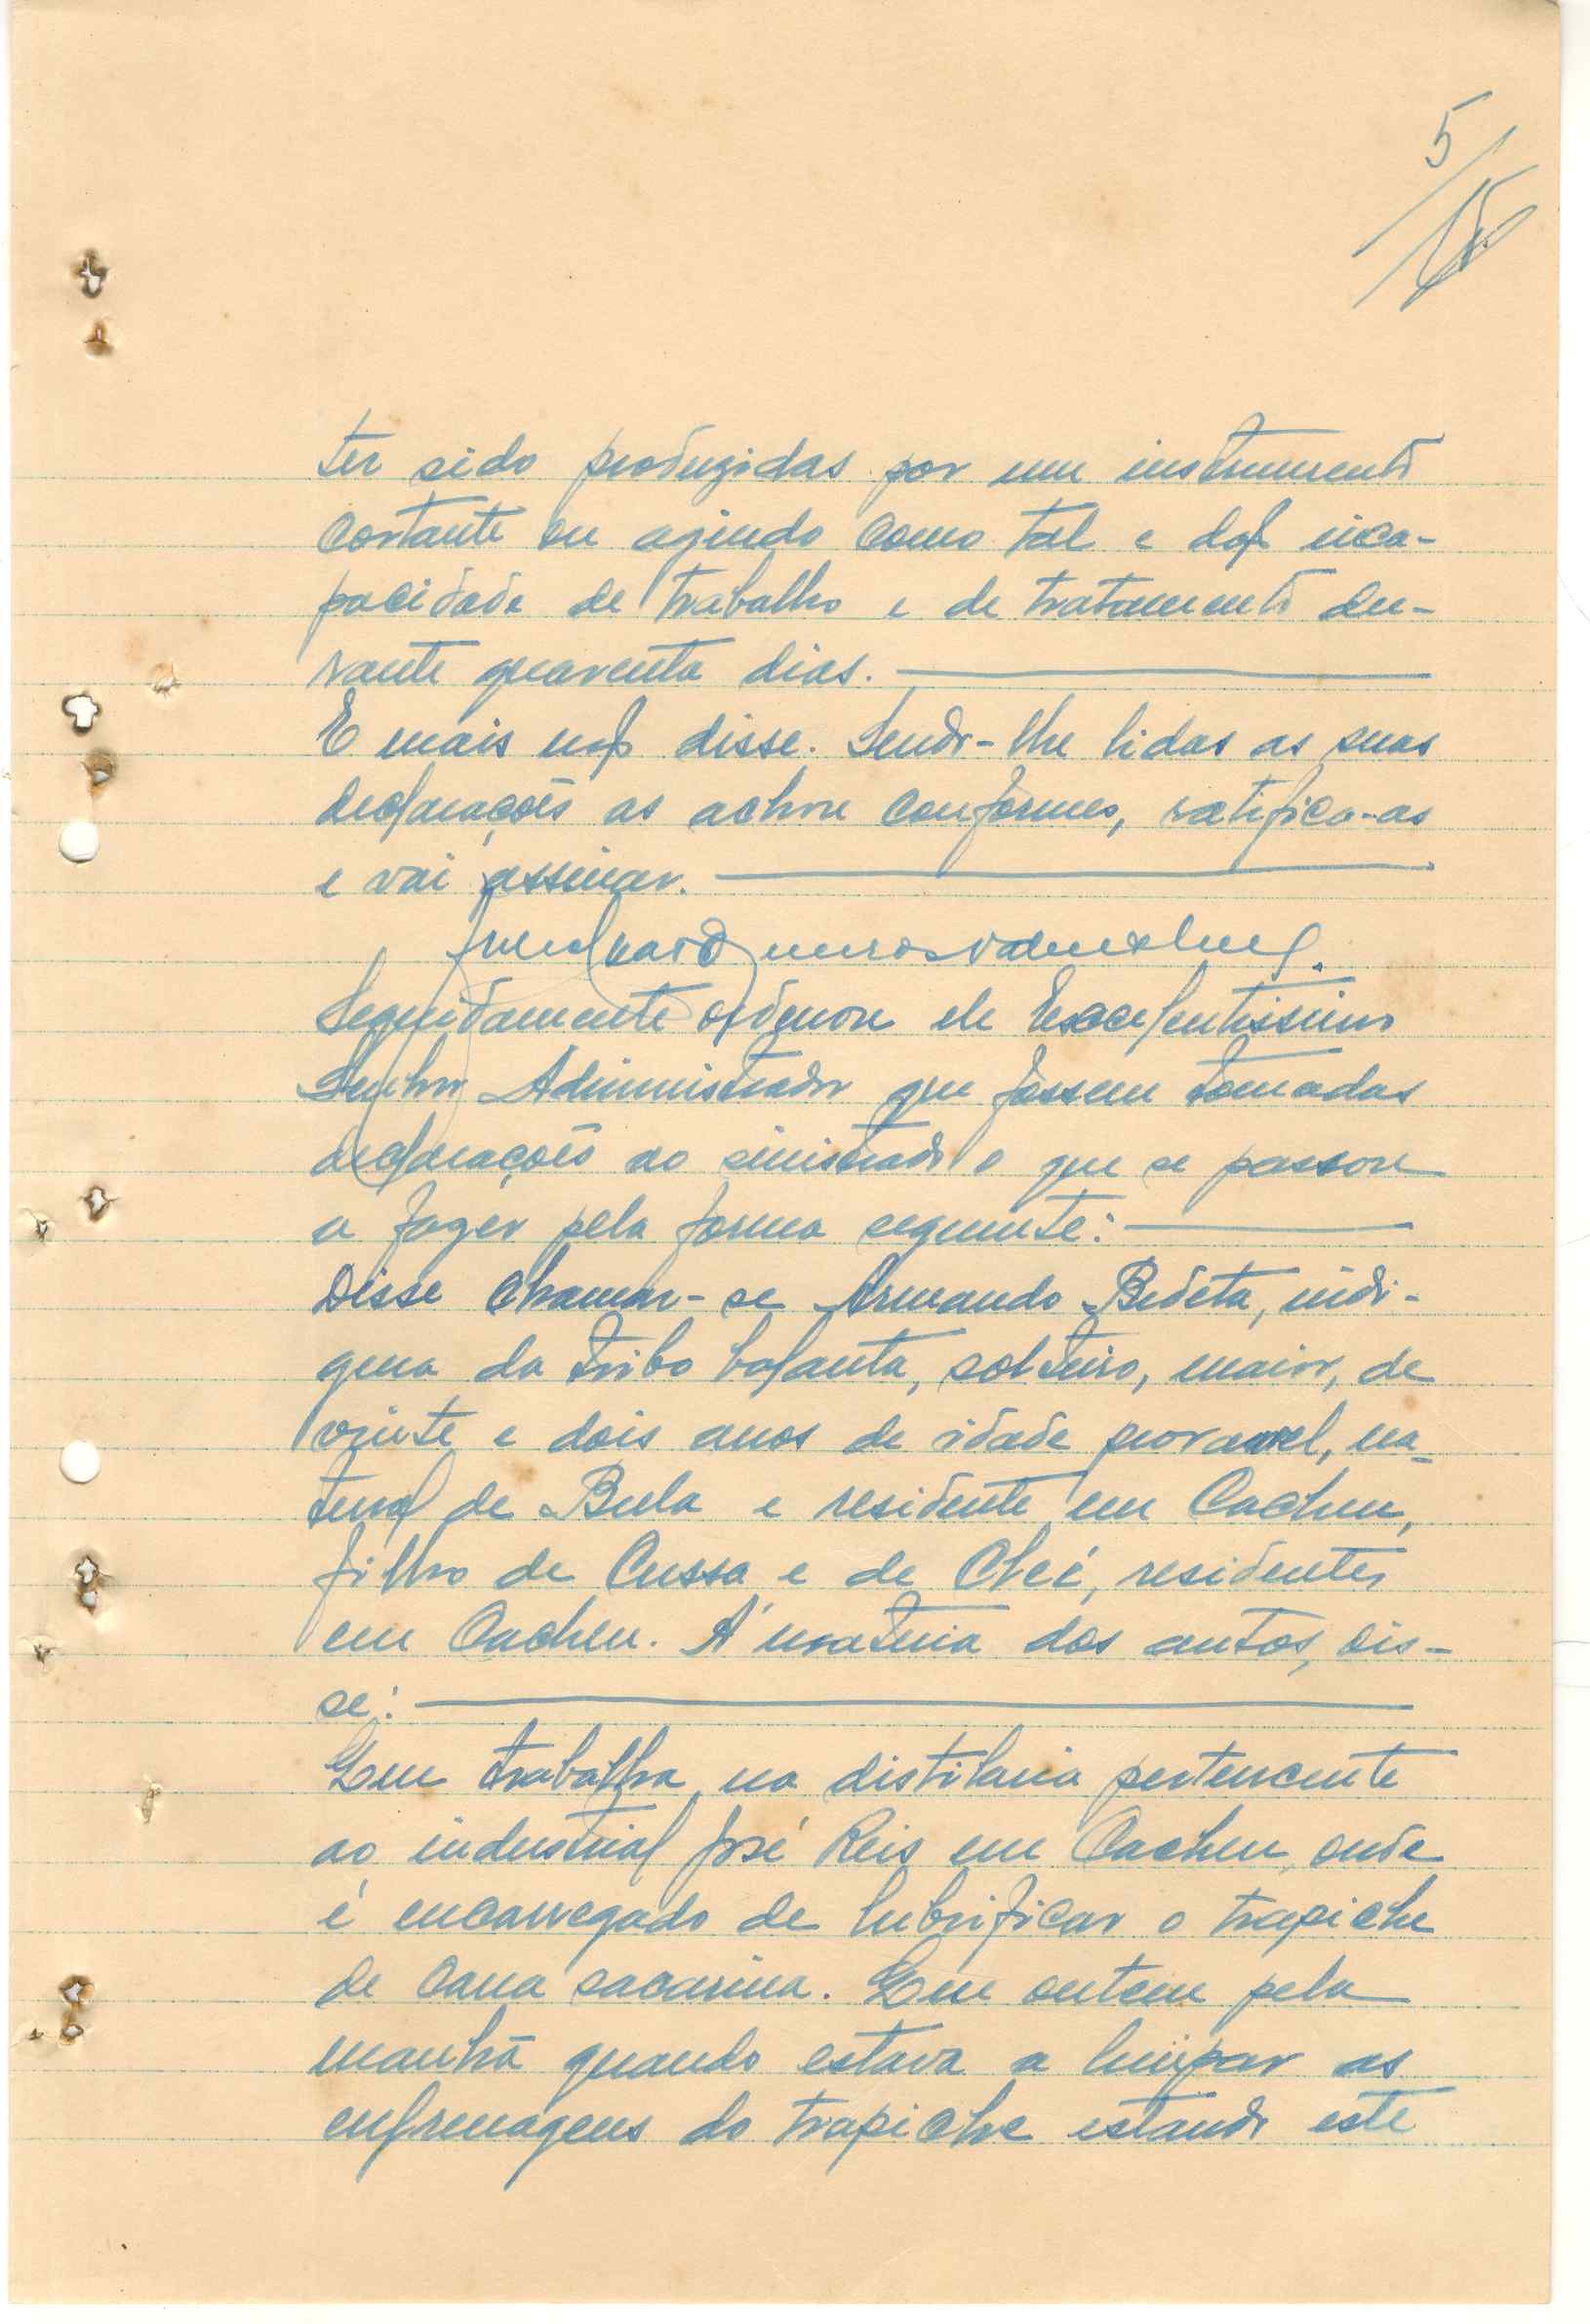 5
ter sido produzidas por um instrumento
cortante ou agindo como tal e dão inca-
pacidade de trabalho e de tratamento du-
rante quarenta dias.
E mais não disse. Sendo-lhe lidas as suas
declarações as achou conformes, ratifica-as
e vai assinar.
Seguidamente ordenou ele Excelentissimo
Senhor Administrador que fossem tomadas
declarações ao sinistrado o que se passou
a fazer pela forma seguinte:
Disse chamar-se Armando Bedeta, indi-
gena da tribo balanta, solteiro, maior, de
vinte e dois anos de idade provavel, na-
tural de Bula e residente em Cacheu,
filho de Cussa e de Clei, residentes
em Cacheu. Á materia dos autos, dis-
se:
Que trabalha na distilaria pertencente
ao industrial José Reis em Cacheu, onde
é encarregado de lubrificar o trapiche
de cana sacarina. Que ontem pela
manhã quando estava a limpar as
enfrenagens do trapiche estando este